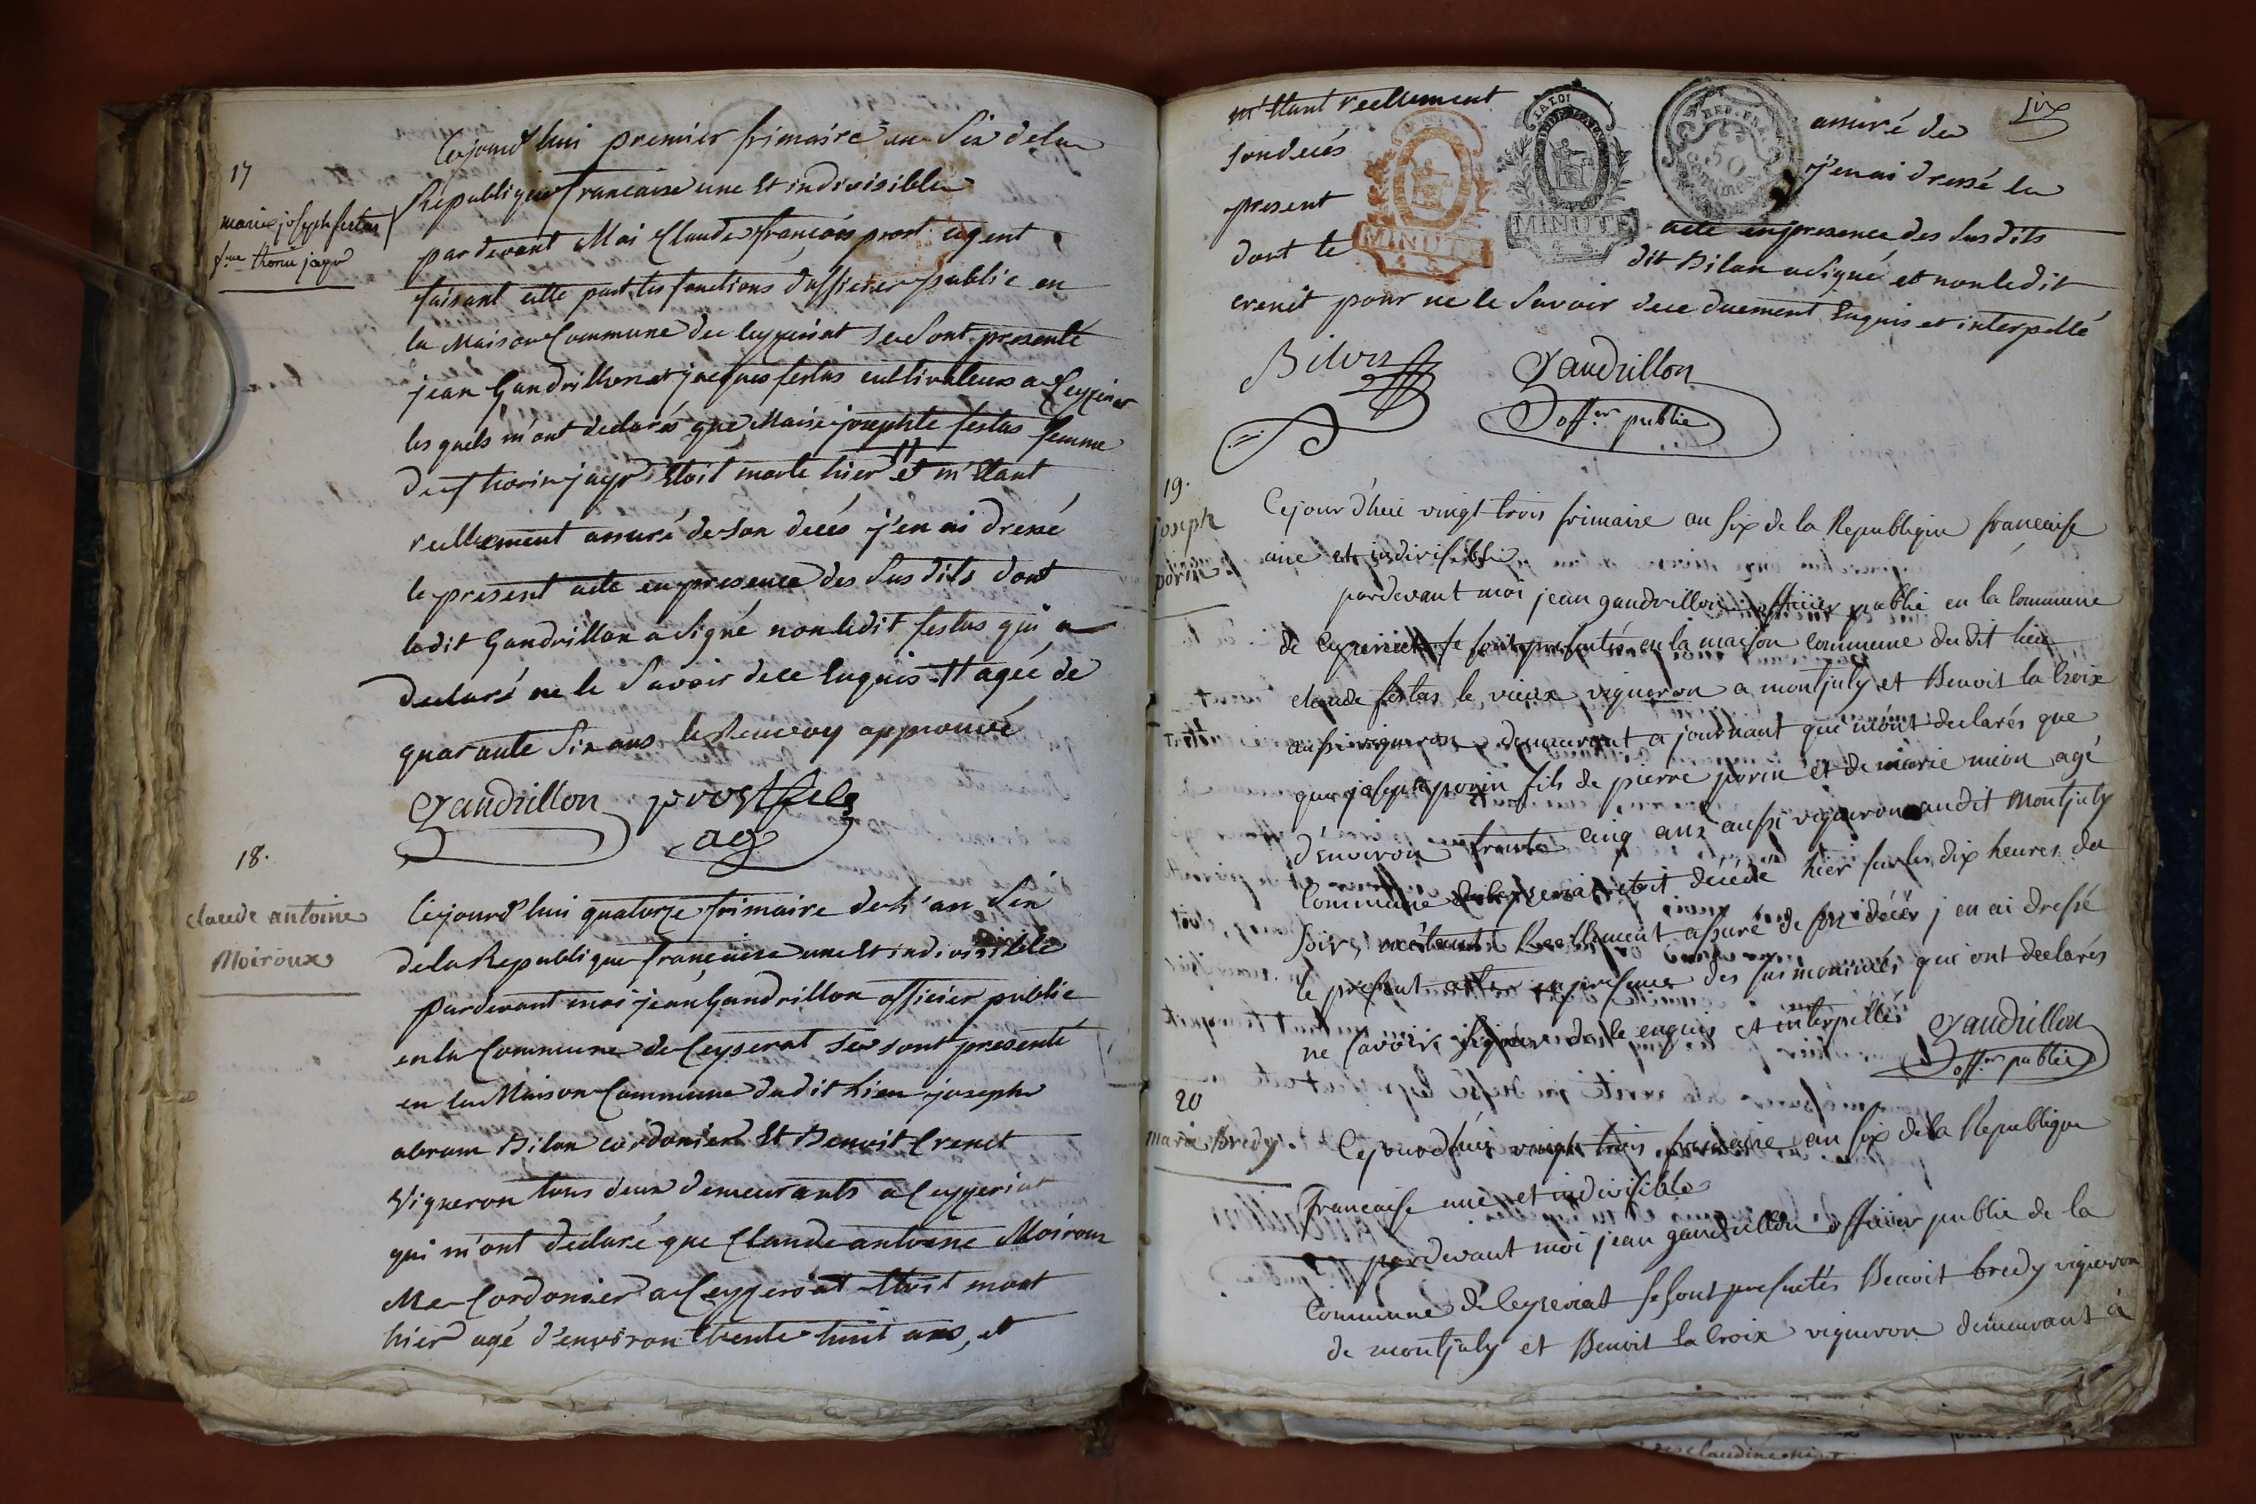 17
marie joseph festas
f.me thorin jayr
Cejourd'hui premier frimaire an Six dela
Republique francaise une Et indivisible
par devant Moi Claude francois prost agent
faisant cette part les fonctions d'officier public en
la Maison Commune de Ceyzeriat se Sont presenté
jean Gandrillon et jacques festas cultivateurs a Ceyzeriat
les quels m'ont declarés que Marie josephte festas femme
de thorin jayr Etoit morte hier # et m'Etant
reellement assuré de son decés j'en ai dressé
le present acte en presence des Susdits dont
ledit Gandrillon a Signé non ledit festas qui a
declaré ne le Savoir de ce Enquis # agée de
quarante Six ans le Renvoy approuvé
Gandrillon prost fils
ag
18.
claude antoine
Moiroux
Cejourd'hui quatorze frimaire de l'an Six
dela Republique française une Et indivisible
Pardevant moi jean Gandrillon officier public
en la Commune de Ceyserat se sont presenté
en la Maison Commune dudit Lieu joseph
abram Bilon cordonier Et Benoit Crenet
Vigneron tous deux demeurants a Ceyzeriat
qui m'ont declaré que Claude antoine Moiroux
Me Cordonier a Ceyzeriat Etoit mort
hier agé d'environ trente huit ans, et
six
m'Etant reellement assuré de
son decés j'en ai dressé le
present acte en presence des Susdits
dont le dit Bilon a Signé et non ledit
crenet pour ne le Savoir de ce duement Enquis et interpellé
LA LOI
REP. FRA.
50
centimes
MINUTE
MINUTE
Bilon Gandrillon
off.er public
19.
joseph
porin
Cejourd'hui vingt trois frimaire an six de la Republique francaise
une et indivisible
pardevant moi jean gandrillon officier public en la Commune
de Ceyzeriat se sont presentés en la maison commune dudit lieu
claude festas le vieux vigneron a montjuly et Benoit la Croix
aussi vigneron demeurant a journant qui m'ont declarés que
que joseph porin fils de pierre porin et de marie mion agé
d'environ trente cinq ans aussi vigneron audit Montjuly
Commune de Ceyzeriat etoit décédé hier sur les dix heures du
soir, m'étant Reellement assuré de son décés j'en ai dressé
le present acte en presence des susnommés qui ont declarés
ne savoir signer de ce enquis et interpellés Gandrillon
off.er public
20
maria bredy
Cejourd'hui vingt trois frimaire an six de la Republique
francaise une et indivisible
pardevant moi jean gandrillon officier public de la
Commune de Ceyzeriat se sont presentés Benoit bredy vigneron
de montjuly et Benoit la Croix vigneron demeurant à